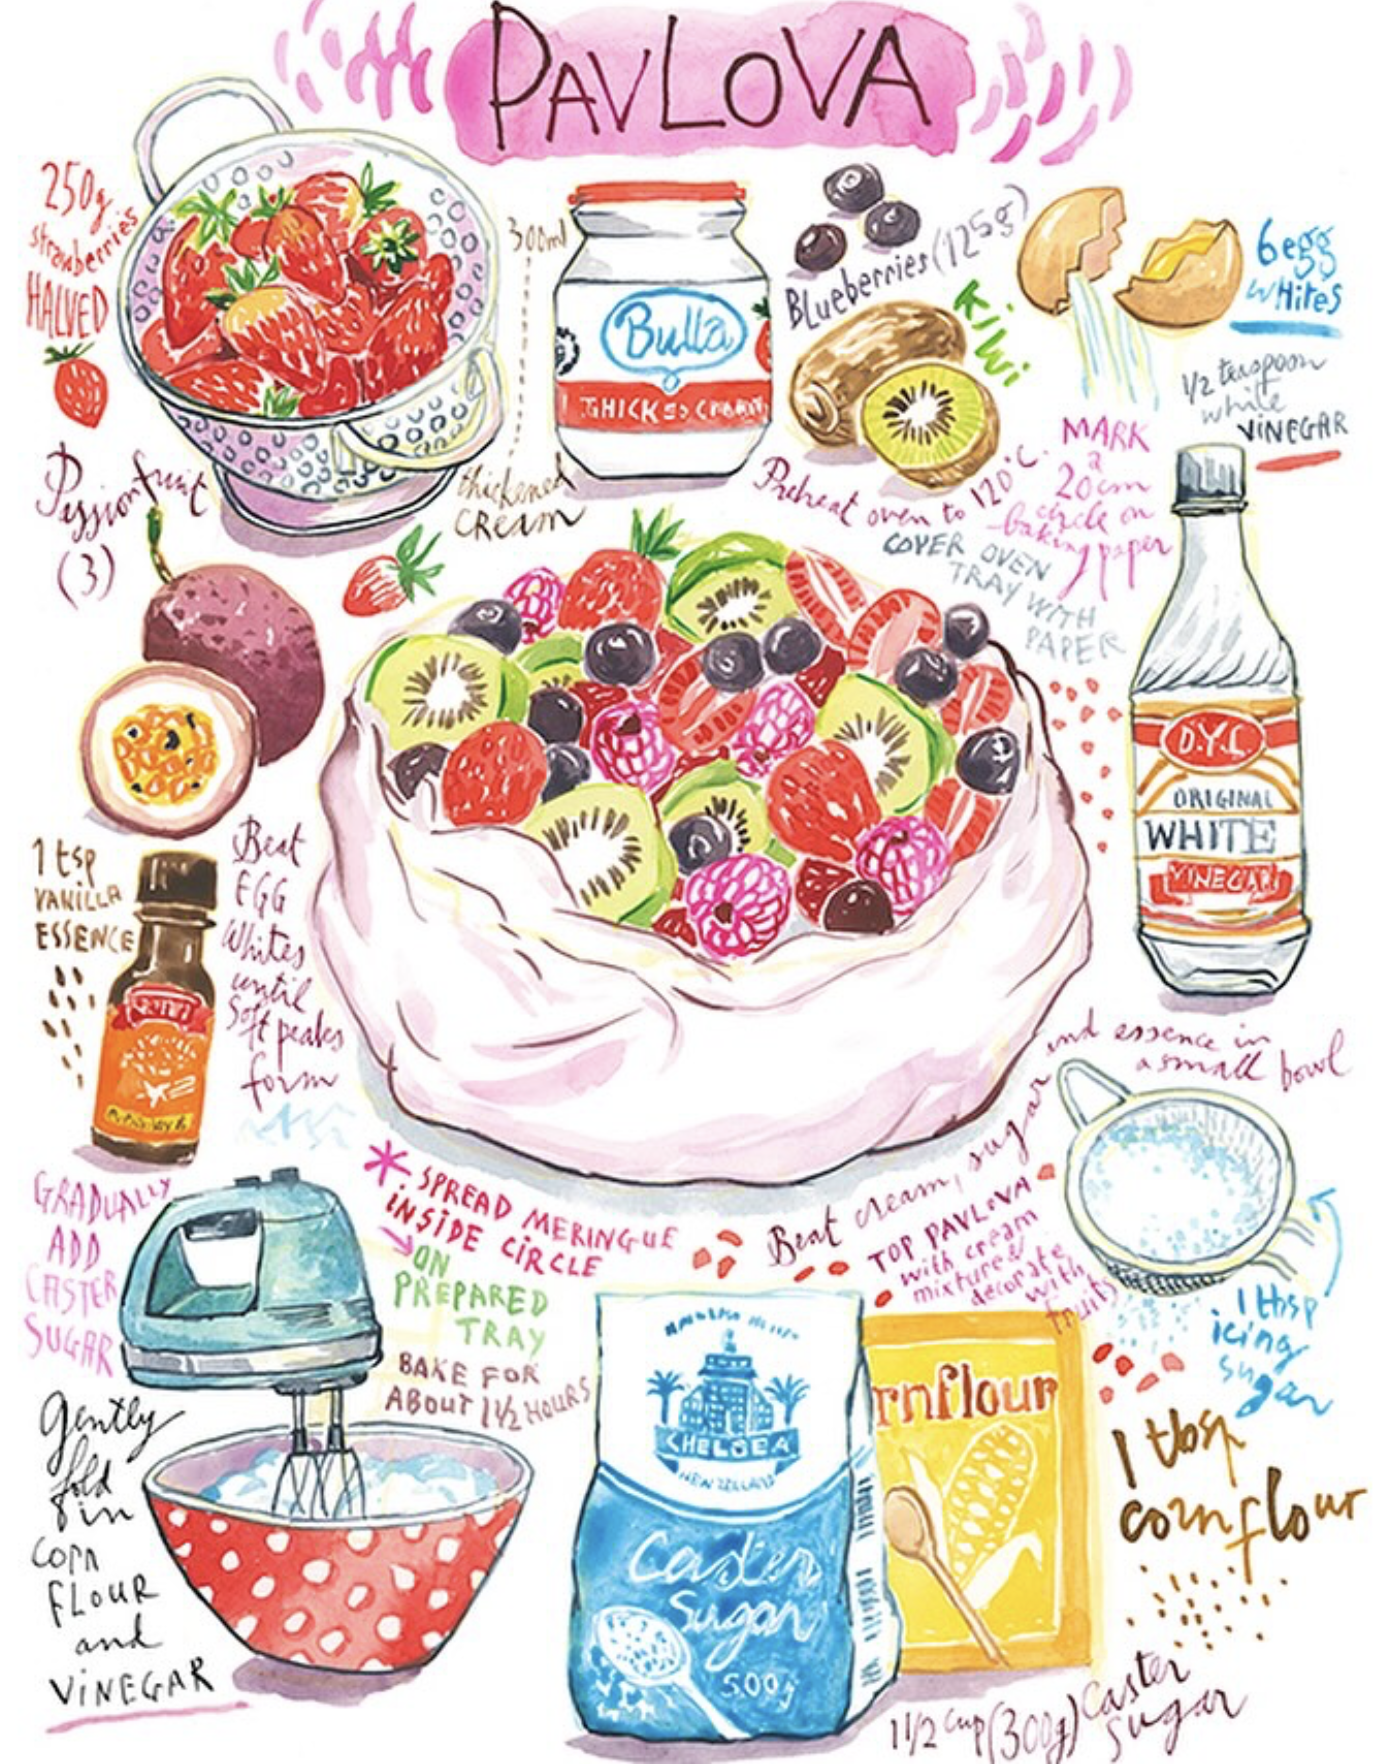 PAVLOVA
250g
strawberries
HALVED
300ml
thickened
CREAM
Bulla
THICKENED CREAM
Blueberries (125g)
Kiwi
6 egg
whites
1/2 teaspoon
white
VINEGAR
Passionfruit
(3)
Preheat oven to 120°C.
MARK
a
20cm
circle on
baking paper
COVER OVEN
TRAY WITH
PAPER
D.Y.C.
ORIGINAL
WHITE
VINEGAR
1 tsp
VANILLA
ESSENCE
Beat
EGG
Whites
until
Soft peaks
form
GRADUALLY
ADD
CASTER
SUGAR
Gently
fold
in
CORN
FLOUR
and
VINEGAR
* SPREAD MERINGUE
INSIDE CIRCLE
ON
PREPARED
TRAY
BAKE FOR
ABOUT 1 1/2 HOURS
Beat cream, sugar and essence in
a small bowl
TOP PAVLOVA
with cream
mixture &
decorate
with
fruits
1 tbsp
icing
sugar
CHELSEA
NEW ZEALAND
Caster
Sugar
500g
rnflour
1 tbsp
cornflour
1 1/2 cup (300g) caster
sugar